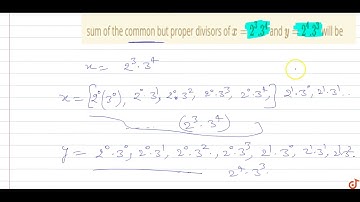 sum of the common but proper divisors of x = 2³.3⁴ and y = 2⁴.3³ will be
x = 2³.3⁴
x = [2⁰(3⁰), 2⁰.3¹, 2⁰.3², 2⁰.3³, 2⁰.3⁴,] 2¹.3⁰, 2¹.3¹..
(2³.3⁴)
y = 2⁰.3⁰, 2⁰.3¹, 2⁰.3², 2⁰.3³, 2¹.3⁰, 2¹.3¹, 2¹.3²
2⁴.3³.